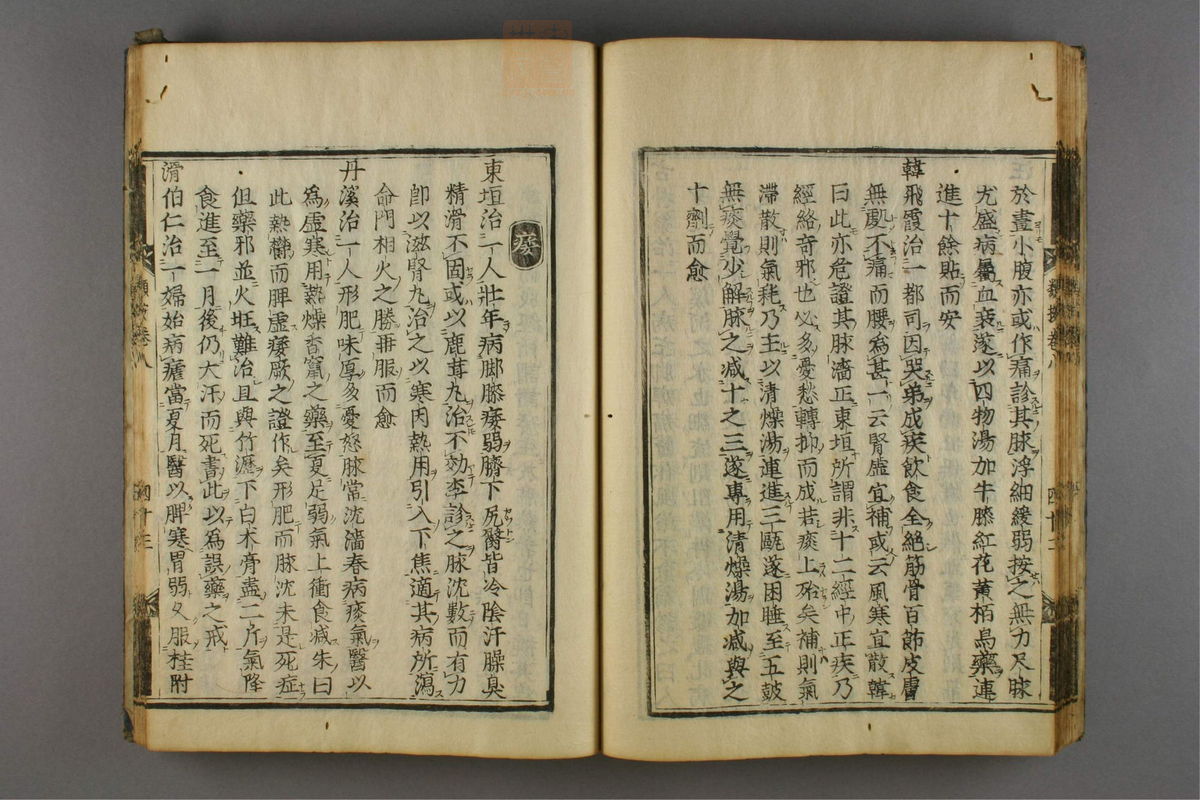 於晝小腹亦或作痛診其脉浮細緩弱按之無力尺脉
尤盛病屬血衰遂以四物湯加牛膝紅花黃栢烏藥連
進十餘貼而安
韓飛霞治一都司因哭弟成疾飲食全絕筋骨百節皮膚
無處不痛而腰爲甚一云腎虛宜補或云風寒宜散韓
曰此亦危證其脉濇正東垣所謂非十二經中正疾乃
經絡奇邪也必多憂愁轉抑而成若痰上殆矣補則氣
滯散則氣耗乃主以清燥湯連進三甌遂困睡至五鼓
無痰覺少解脉之减十之三遂專用清燥湯加减與之
十劑而愈
痿
東垣治一人壯年病脚膝痿弱臍下尻臀皆冷陰汗臊臭
精滑不固或以鹿茸丸治不効李診之脉沈數而有力
卽以滋腎丸治之以寒丙熱用引入下焦適其病所瀉
命門相火之勝再服而愈
丹溪治一人形肥味厚多憂怒脉當沈濇春病痰氣醫以
爲虛寒用熱燥香竄之藥至夏足弱氣上衝食减朱曰
此熱欝而脾虛痿厥之證作矣形肥而脉沈未是死症
但藥邪並火旺難治且與竹瀝下白术膏盡二斤氣降
食進至一月後仍大汗而死書此以爲誤藥之戒
滑伯仁治一婦始病瘧當夏月醫以脾寒胃弱久服桂附
類按卷八
四十二
類按卷八
四十三